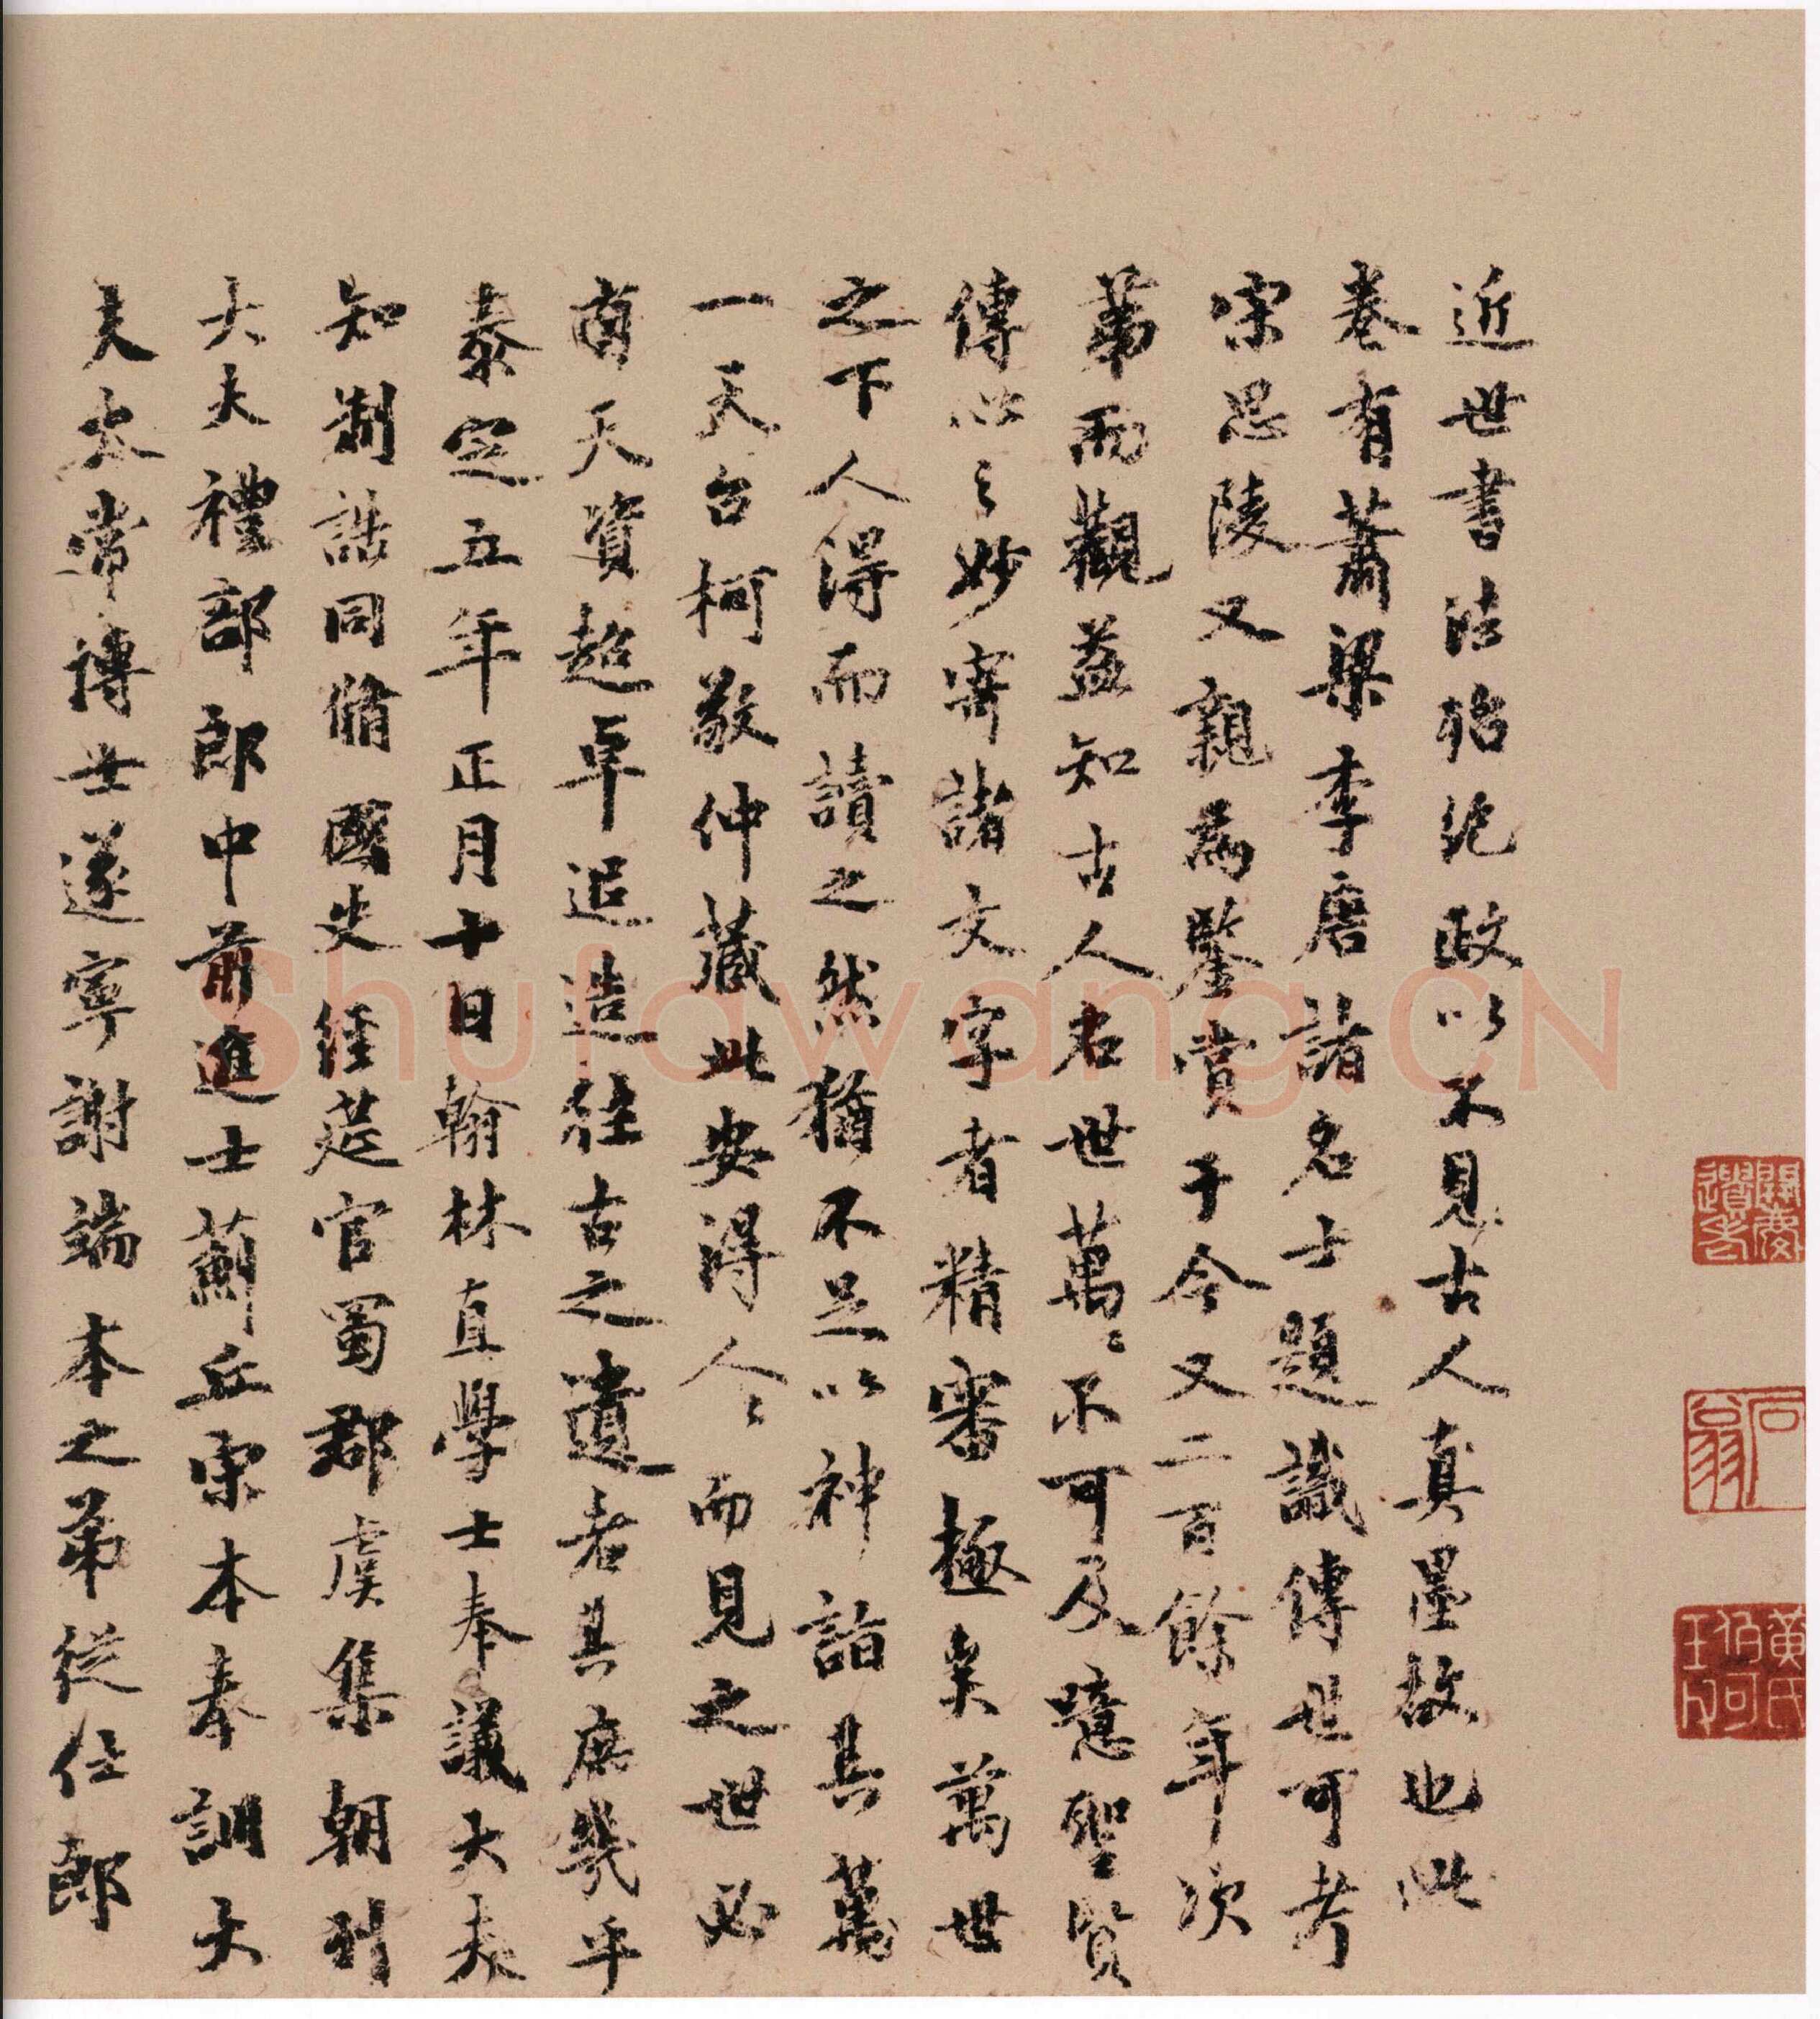 近世書法殆絕政以不見古人真墨故也此
卷有蕭梁李唐諸名士題識傳世可考
宋思陵又親為鑒賞于今又二百餘年次
第而觀益知古人名世萬〻不可及噫聖賢
傳心之妙寄諸文字者精審極矣萬世
之下人得而讀之然猶不足以神詣其萬
一天台柯敬仲藏此安得人〻而見之世必
有天資超卓追造往古之遺者其庶幾乎
泰定五年正月十日翰林直學士奉議大夫
知制誥同脩國史經筵官蜀郡虞集朝列
大夫禮部郎中前進士薊丘宋本奉訓大
夫太常博士遂寧謝端本之弟從仕郎
石翁
黃氏伯可
Shufawang.CN